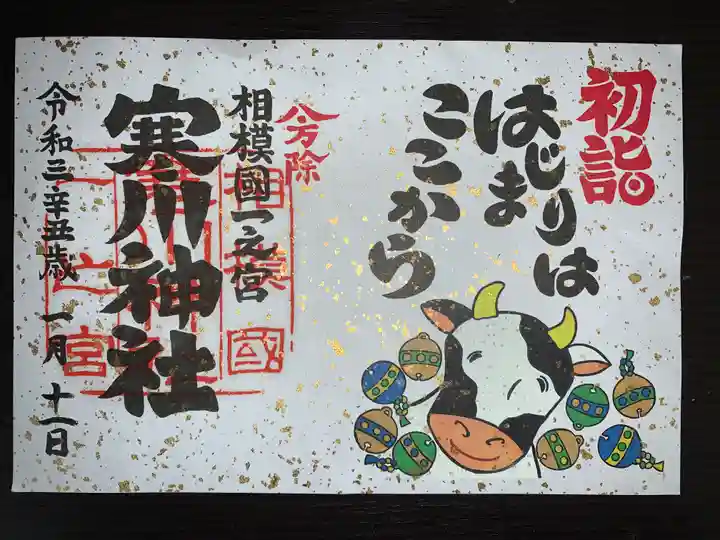 初詣
はじまりは
ここから
八方除
相模國一之宮
寒川神社
令和三辛丑歳 一月 十一日
相模國
一之宮